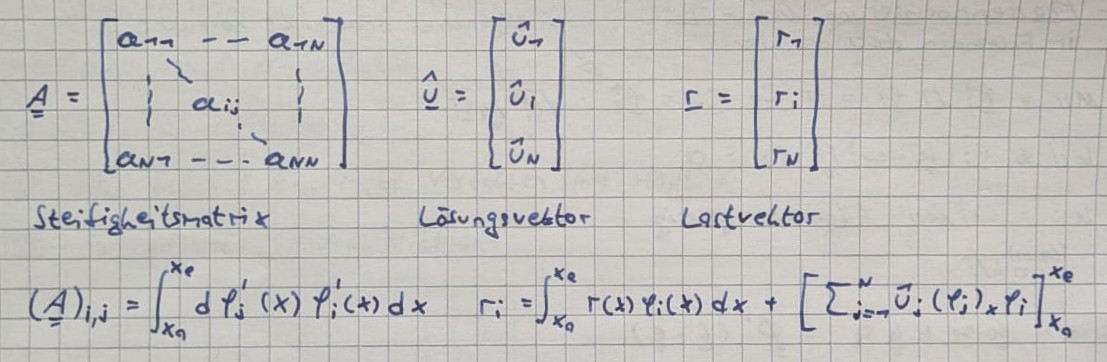 a₁₁ -- a₁N û₁ r₁
A = aᵢⱼ û = ûᵢ r = rᵢ
aN₁ --- aNN ûN rN
Steifigkeitsmatrix Lösungsvektor Lastvektor
(A)i,j = ∫_{x_a}^{x_e} d φⱼ'(x) φᵢ'(x) dx rᵢ = ∫_{x_a}^{x_e} r(x) φᵢ(x) dx + [∑_{j=1}^{N} ûⱼ (φⱼ)ₓ φᵢ]_{x_a}^{x_e}